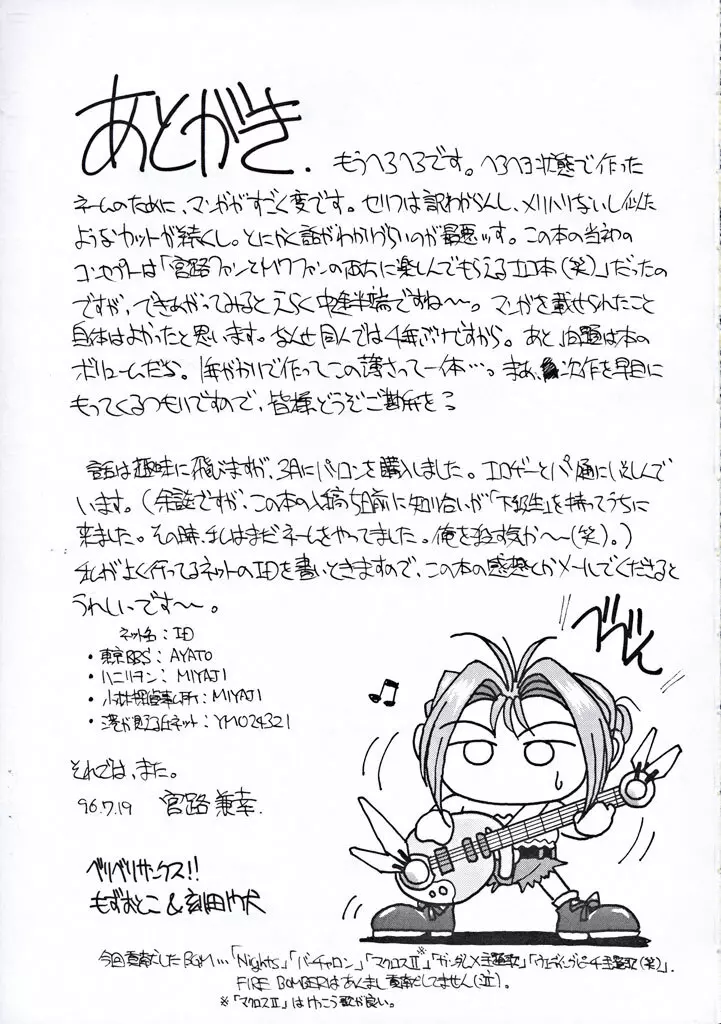 あとがき. もうへろへろです。へろへろ状態で作った
ネームのために、マンガがすごく変です。セリフは訳わからんし、メリハリないし似た
ようなカットが続くし。とにかく話がわかりづらいのが最悪ッす。この本の当初の
コンセプトは「宮路ファンと ファンの両方に楽しんでもらえるエロ本(笑)」だったの
ですが、できあがってみるとえらく中途半端ですね〜〜。マンガを載せられたこと
自体はよかったと思います。なんせ同人では4年ぶりですから。あと、問題は本の
ボリュームだな。1年がかりで作ってこの薄さって一体…。まあ、次作を早目に
もってくるつもりですので、皆様どうぞご勘弁を
話は趣味に飛びますが、3月にパソコンを購入しました。エロゲーとパソ通にいそしんで
います。(余談ですが、この本の入稿5日前に知り合いが「下級生」を持ってうちに
来ました。その時、私はまだネームをやってました。俺を殺す気か〜〜(笑)。)
私がよく行ってるネットのIDを書いときますので、この本の感想とかメールでくださると
うれしいです〜〜。
ネット名:ID
・東京BBS:AYATO
・ハニリオン:MIYAJI
・小林探偵事務所:MIYAJI
・港が見える丘ネット:YMO24321
それでは、また。
96.7.19 宮路兼幸.
べりべりサンクス!!
もずおとこ&
べべん
今回貢献したBGM…「Nights」「バーチャロン」「マクロスⅡ※」「ガンダムX主題歌」「ウェディングピーチ主題歌(笑)」.
FIRE BOMBERはあんまし貢献してません(泣).
※「マクロスⅡ」はけっこう歌が良い。